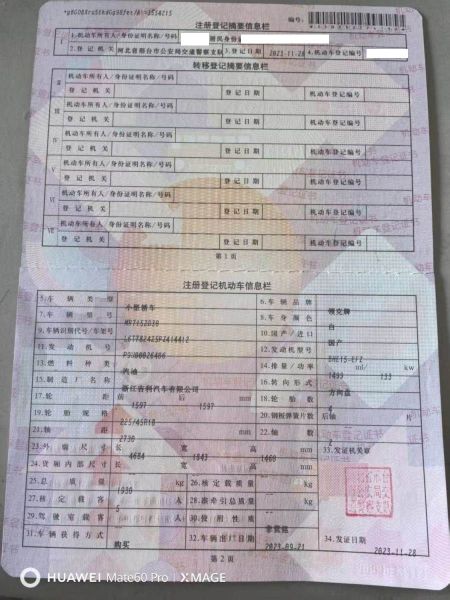 注册登记摘要信息栏
编号:
Ⅰ 1.机动车所有人/身份证明名称/号码 居民身份证
2.登记机关 河北省邢台市公安局交通警察支队 3.登记日期 2023-11-28 4.机动车登记编号
转移登记摘要信息栏
Ⅱ 机动车所有人/身份证明名称/号码
登记机关 登记日期 机动车登记编号
Ⅲ 机动车所有人/身份证明名称/号码
登记机关 登记日期 机动车登记编号
Ⅳ 机动车所有人/身份证明名称/号码
登记机关 登记日期 机动车登记编号
Ⅴ 机动车所有人/身份证明名称/号码
登记机关 登记日期 机动车登记编号
Ⅵ 机动车所有人/身份证明名称/号码
登记机关 登记日期 机动车登记编号
Ⅶ 机动车所有人/身份证明名称/号码
登记机关 登记日期 机动车登记编号
第1页
注册登记机动车信息栏
5.车辆类型 小型轿车 6.车辆品牌 领克牌
7.车辆型号 8.车身颜色 白
9.车辆识别代号/车架号 10.国产/进口 国产
11.发动机号 12.发动机型号 DHE15-EFZ
13.燃料种类 汽油 14.排量/功率 1499 ml/ 133 kw
15.制造厂名称 浙江吉利汽车有限公司 16.转向形式 方向盘
17.轮距 前 1597 后 1597 mm 18.轮胎数 4
19.轮胎规格 225/45R18 20.钢板弹簧片数 后轴 片
21.轴距 2730 mm 22.轴数 2
23.外廓尺寸 长 4684 宽 1843 高 1460 mm 33.发证机关章
24.货厢内部尺寸 长 宽 高 mm
25.总质量 1930 kg 26.核定载质量 kg
27.核定载客 5 人 28.准牵引总质量 kg
29.驾驶室载客 人 30.使用性质
31.车辆获得方式 购买 32.车辆出厂日期 2023-09-21 34.发证日期 2023-11-28
第2页
HUAWEI Mate60 Pro | XMAGE